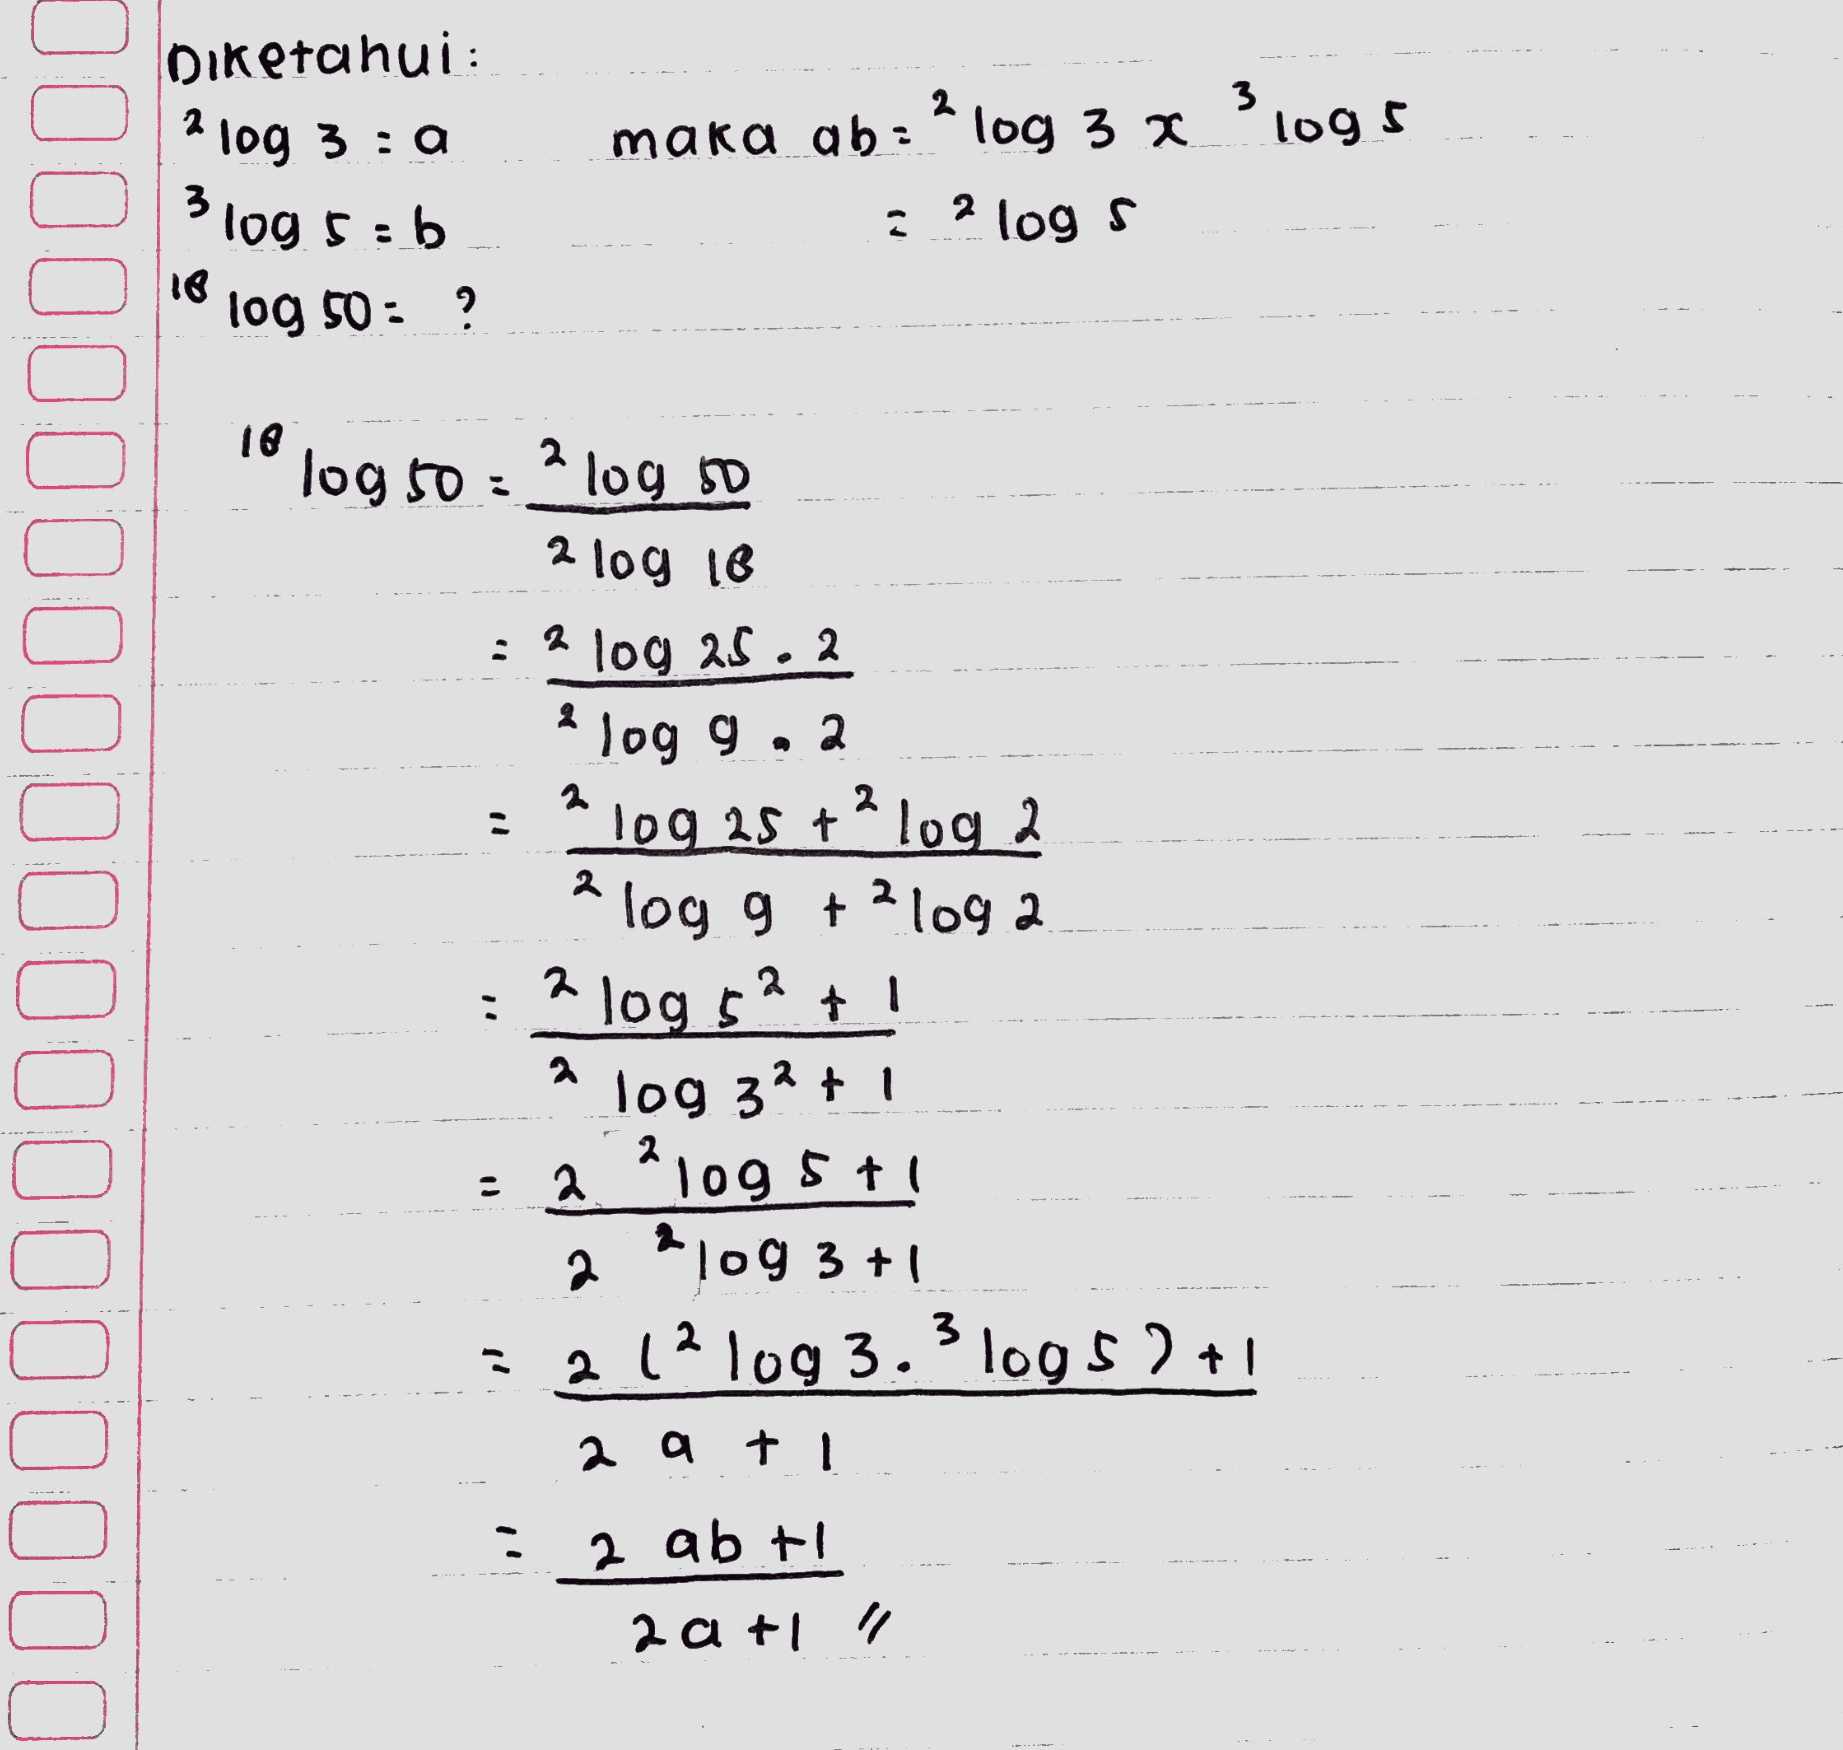 Diketahui:
²log 3 = a maka ab = ²log 3 x ³log 5
³log 5 = b = ²log 5
¹⁸log 50 = ?
¹⁸log 50 = ²log 50
²log 18
= ²log 25 . 2
²log 9 . 2
= ²log 25 + ²log 2
²log 9 + ²log 2
= ²log 5² + 1
²log 3² + 1
= 2 ²log 5 + 1
2 ²log 3 + 1
= 2 (²log 3 . ³log 5) + 1
2 a + 1
= 2 ab + 1
2a + 1 //